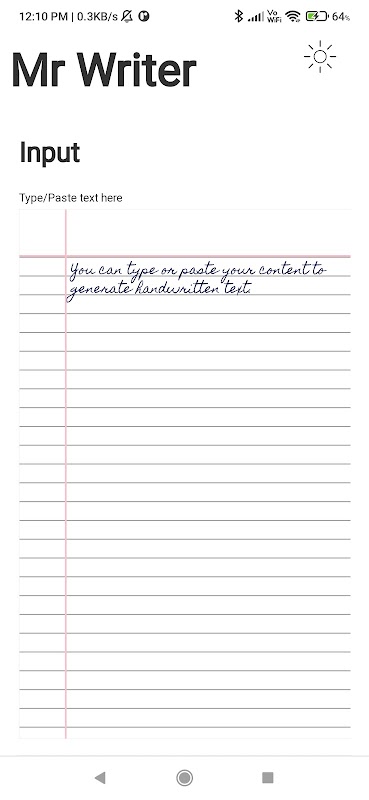 12:10 PM | 0.3KB/s
Vo
WiFi
64%
Mr Writer
Input
Type/Paste text here
You can type or paste your content to
generate handwritten text.